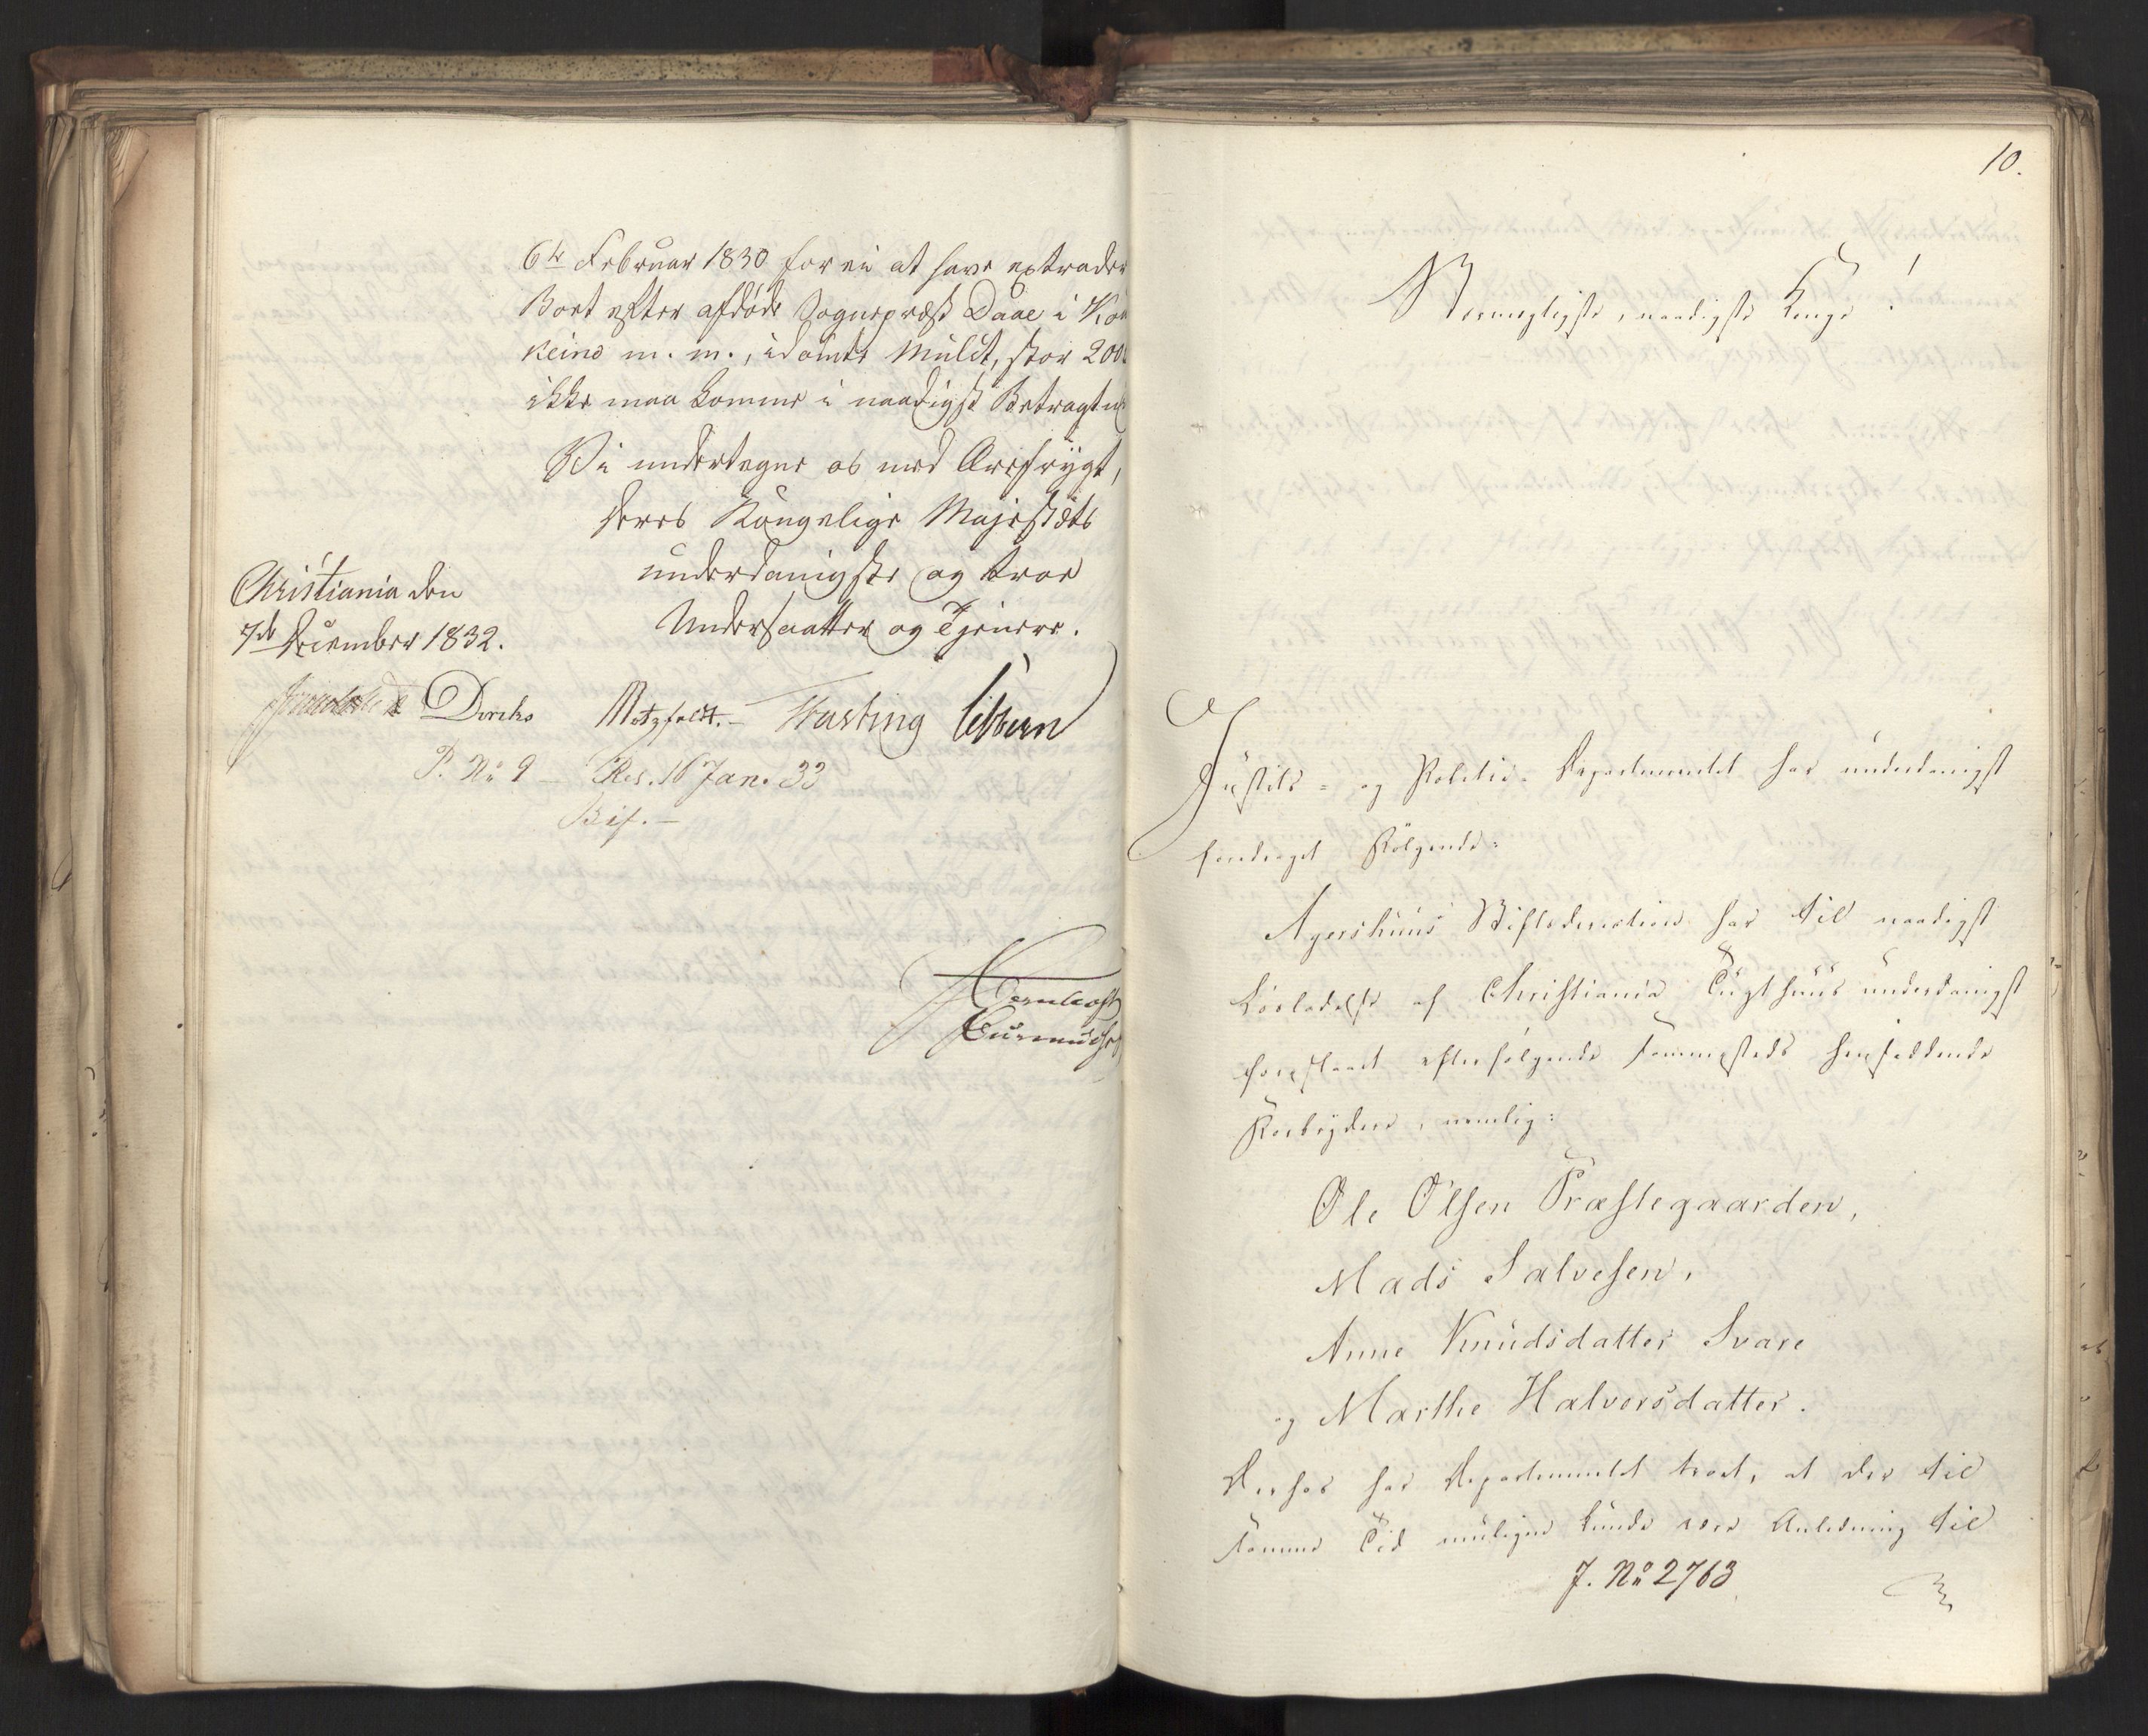 6te Februar 1830 for ei at have extrader
Boet efter afdøde Sognepræst Daae i Kou
keino m. m., idømte Mulct, stor 200
ikke maa komme i naadigst Betragtn
Vi undertegne os med Ærefrygt,
Deres Kongelige Majestæts
underdanigste og troe
Undersaatter og Tjenere.
Christiania den
7de December 1832.
Diriks Motzfeldt. Fasting Sibbern
P. No 9 – Res. 16 Jan. 33
Bif. –
10.
Stormægtigste, naadigste Konge!
Justits- og Politie-Departementet har underdanigst
foredraget Følgende:
Agershuus Stiftsdirection har til naadigst
Løsladelse af Christiania Tugthuus underdanigst
foreslaaet efterfølgende sammesteds hensiddende
Forbrydere, nemlig:
Ole Olsen Præstegaarden,
Mads Salvesen,
Anne Knudsdatter Svare
og Marthe Halvorsdatter.
Derhos har Departementet troet, at der til
samme Tid muligen kunde være Anledning til
J. No 2763